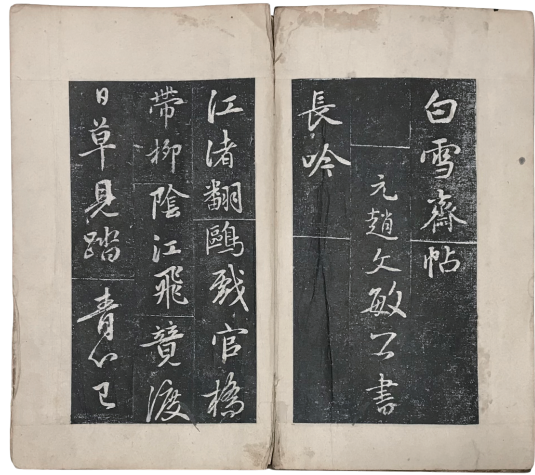 白雪齋帖
元趙文敏公書
長吟
江渚翻鷗戲官橋
帶柳陰江飛竟渡
日草見踏青心已